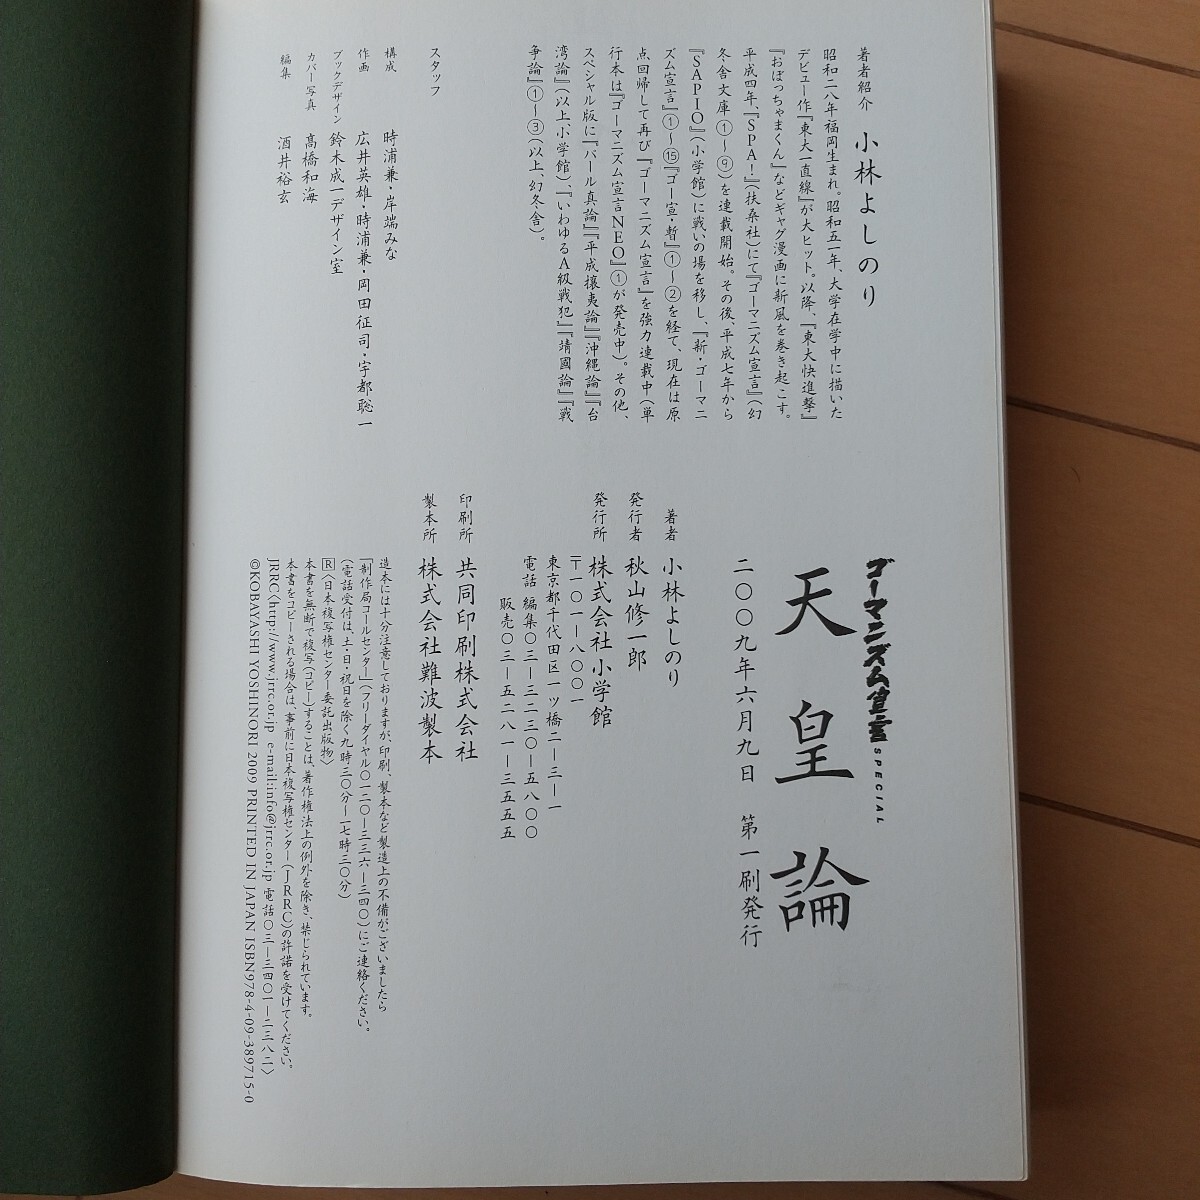 著者紹介 小林よしのり
昭和二八年福岡生まれ。昭和五一年、大学在学中に描いた
デビュー作『東大一直線』が大ヒット。以降、『東大快進撃』
『おぼっちゃまくん』などギャグ漫画に新風を巻き起こす。
平成四年、『SPA!』(扶桑社)にて『ゴーマニズム宣言』(幻
冬舎文庫①〜⑨)を連載開始。その後、平成七年から
『SAPIO』(小学館)に戦いの場を移し、『新・ゴーマニ
ズム宣言』①〜⑮『ゴー宣・暫』①〜②を経て、現在は原
点回帰して再び『ゴーマニズム宣言』を強力連載中(単
行本は『ゴーマニズム宣言NEO』①が発売中)。その他、
スペシャル版に『パール真論』『平成攘夷論』『沖縄論』『台
湾論』(以上、小学館)、『いわゆるA級戦犯』『靖國論』『戦
争論』①〜③(以上、幻冬舎)。
スタッフ
構成 時浦兼・岸端みな
作画 広井英雄・時浦兼・岡田征司・宇都聡一
ブックデザイン 鈴木成一デザイン室
カバー写真 高橋和海
編集 酒井裕玄
ゴーマニズム宣言SPECIAL
天皇論
二〇〇九年六月九日 第一刷発行
著者 小林よしのり
発行者 秋山修一郎
発行所 株式会社小学館
〒一〇一-八〇〇一
東京都千代田区一ツ橋二-三-一
電話 編集〇三-三二三〇-五八〇〇
販売〇三-五二八一-三五五五
印刷所 共同印刷株式会社
製本所 株式会社難波製本
造本には十分注意しておりますが、印刷、製本など製造上の不備がございましたら
「制作局コールセンター」(フリーダイヤル〇一二〇-三三六-三四〇)にご連絡ください。
(電話受付は、土・日・祝日を除く九時三〇分〜一七時三〇分)
R〈日本複写権センター委託出版物〉
本書を無断で複写(コピー)することは、著作権法上の例外を除き、禁じられています。
本書をコピーされる場合は、事前に日本複写権センター(JRRC)の許諾を受けてください。
JRRC〈http://www.jrrc.or.jp e-mail:info@jrrc.or.jp 電話〇三-三四〇一-二三八二〉
©KOBAYASHI YOSHINORI 2009 PRINTED IN JAPAN ISBN978-4-09-389715-0